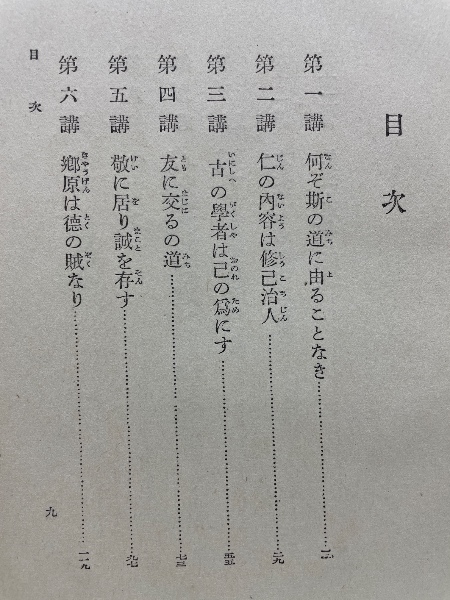 目次
第一講 何ぞ斯の道に由ることなき
第二講 仁の內容は修己治人 二九
第三講 古の學者は己の爲にす 五五
第四講 友に交るの道 七三
第五講 敬に居り誠を存す 九七
第六講 鄕原は德の賊なり 一一九
目次
九